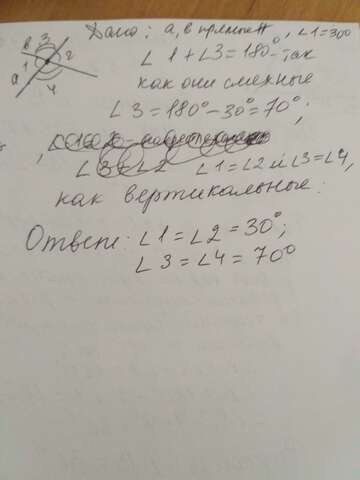 Дано: а, в прямые, ∠1=30°
в 3
1 2
а
4
∠1+∠3=180°-так
как они смежные
∠3=180°-30°=70°;
∠3=∠2 ∠1=∠2 и ∠3=∠4,
как вертикальные.
Ответ: ∠1=∠2=30°;
∠3=∠4=70°